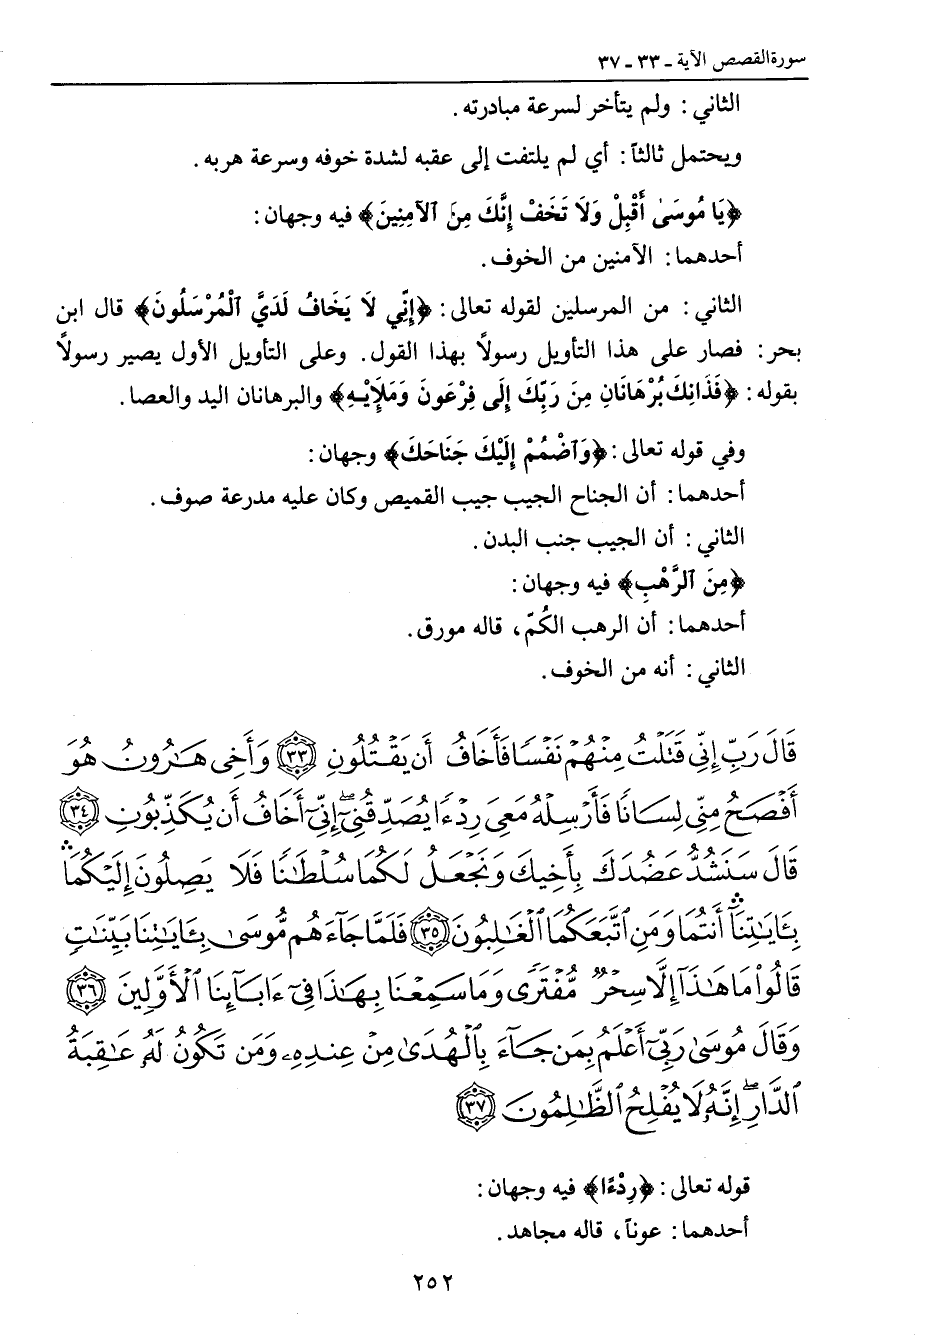 سورة القصص الآية ـ ٣٣ ـ ٣٧
الثاني: ولم يتأخر لسرعة مبادرته.
ويحتمل ثالثاً: أي لم يلتفت إلى عقبه لشدة خوفه وسرعة هربه.
﴿يَا مُوسَىٰ أَقْبِلْ وَلَا تَخَفْ إِنَّكَ مِنَ ٱلْآمِنِينَ﴾ فيه وجهان:
أحدهما: الآمنين من الخوف.
الثاني: من المرسلين لقوله تعالى: ﴿إِنِّي لَا يَخَافُ لَدَيَّ ٱلْمُرْسَلُونَ﴾ قال ابن
بحر: فصار على هذا التأويل رسولاً بهذا القول. وعلى التأويل الأول يصير رسولاً
بقوله: ﴿فَذَانِكَ بُرْهَانَانِ مِنَ رَبِّكَ إِلَى فِرْعَونَ وَمَلإِيْهِ﴾ والبرهانان اليد والعصا.
وفي قوله تعالى: ﴿وَٱضْمُمْ إِلَيْكَ جَنَاحَكَ﴾ وجهان:
أحدهما: أن الجناح الجيب جيب القميص وكان عليه مدرعة صوف.
الثاني: أن الجيب جنب البدن.
﴿مِنَ ٱلرَّهْبِ﴾ فيه وجهان:
أحدهما: أن الرهب الكُمّ، قاله مورق.
الثاني: أنه من الخوف.
قَالَ رَبِّ إِنِّي قَتَلْتُ مِنْهُمْ نَفْسًا فَأَخَافُ أَن يَقْتُلُونِ ٣٣ وَأَخِى هَـٰرُونُ هُوَ
أَفْصَحُ مِنِّى لِسَانًا فَأَرْسِلْهُ مَعِىَ رِدْءًا يُصَدِّقُنِىٓ ۖ إِنِّىٓ أَخَافُ أَن يُكَذِّبُونِ ٣٤
قَالَ سَنَشُدُّ عَضُدَكَ بِأَخِيكَ وَنَجْعَلُ لَكُمَا سُلْطَـٰنًا فَلَا يَصِلُونَ إِلَيْكُمَا ۛ
بِـَٔايَـٰتِنَآ ۛ أَنتُمَا وَمَنِ ٱتَّبَعَكُمَا ٱلْغَـٰلِبُونَ ٣٥ فَلَمَّا جَآءَهُم مُّوسَىٰ بِـَٔايَـٰتِنَا بَيِّنَـٰتٍ
قَالُوا۟ مَا هَـٰذَآ إِلَّا سِحْرٌ مُّفْتَرًى وَمَا سَمِعْنَا بِهَـٰذَا فِىٓ ءَابَآئِنَا ٱلْأَوَّلِينَ ٣٦
وَقَالَ مُوسَىٰ رَبِّىٓ أَعْلَمُ بِمَن جَآءَ بِٱلْهُدَىٰ مِنْ عِندِهِۦ وَمَن تَكُونُ لَهُۥ عَـٰقِبَةُ
ٱلدَّارِ ۖ إِنَّهُۥ لَا يُفْلِحُ ٱلظَّـٰلِمُونَ ٣٧
قوله تعالى: ﴿رِدْءًا﴾ فيه وجهان:
أحدهما: عوناً، قاله مجاهد.
٢٥٢